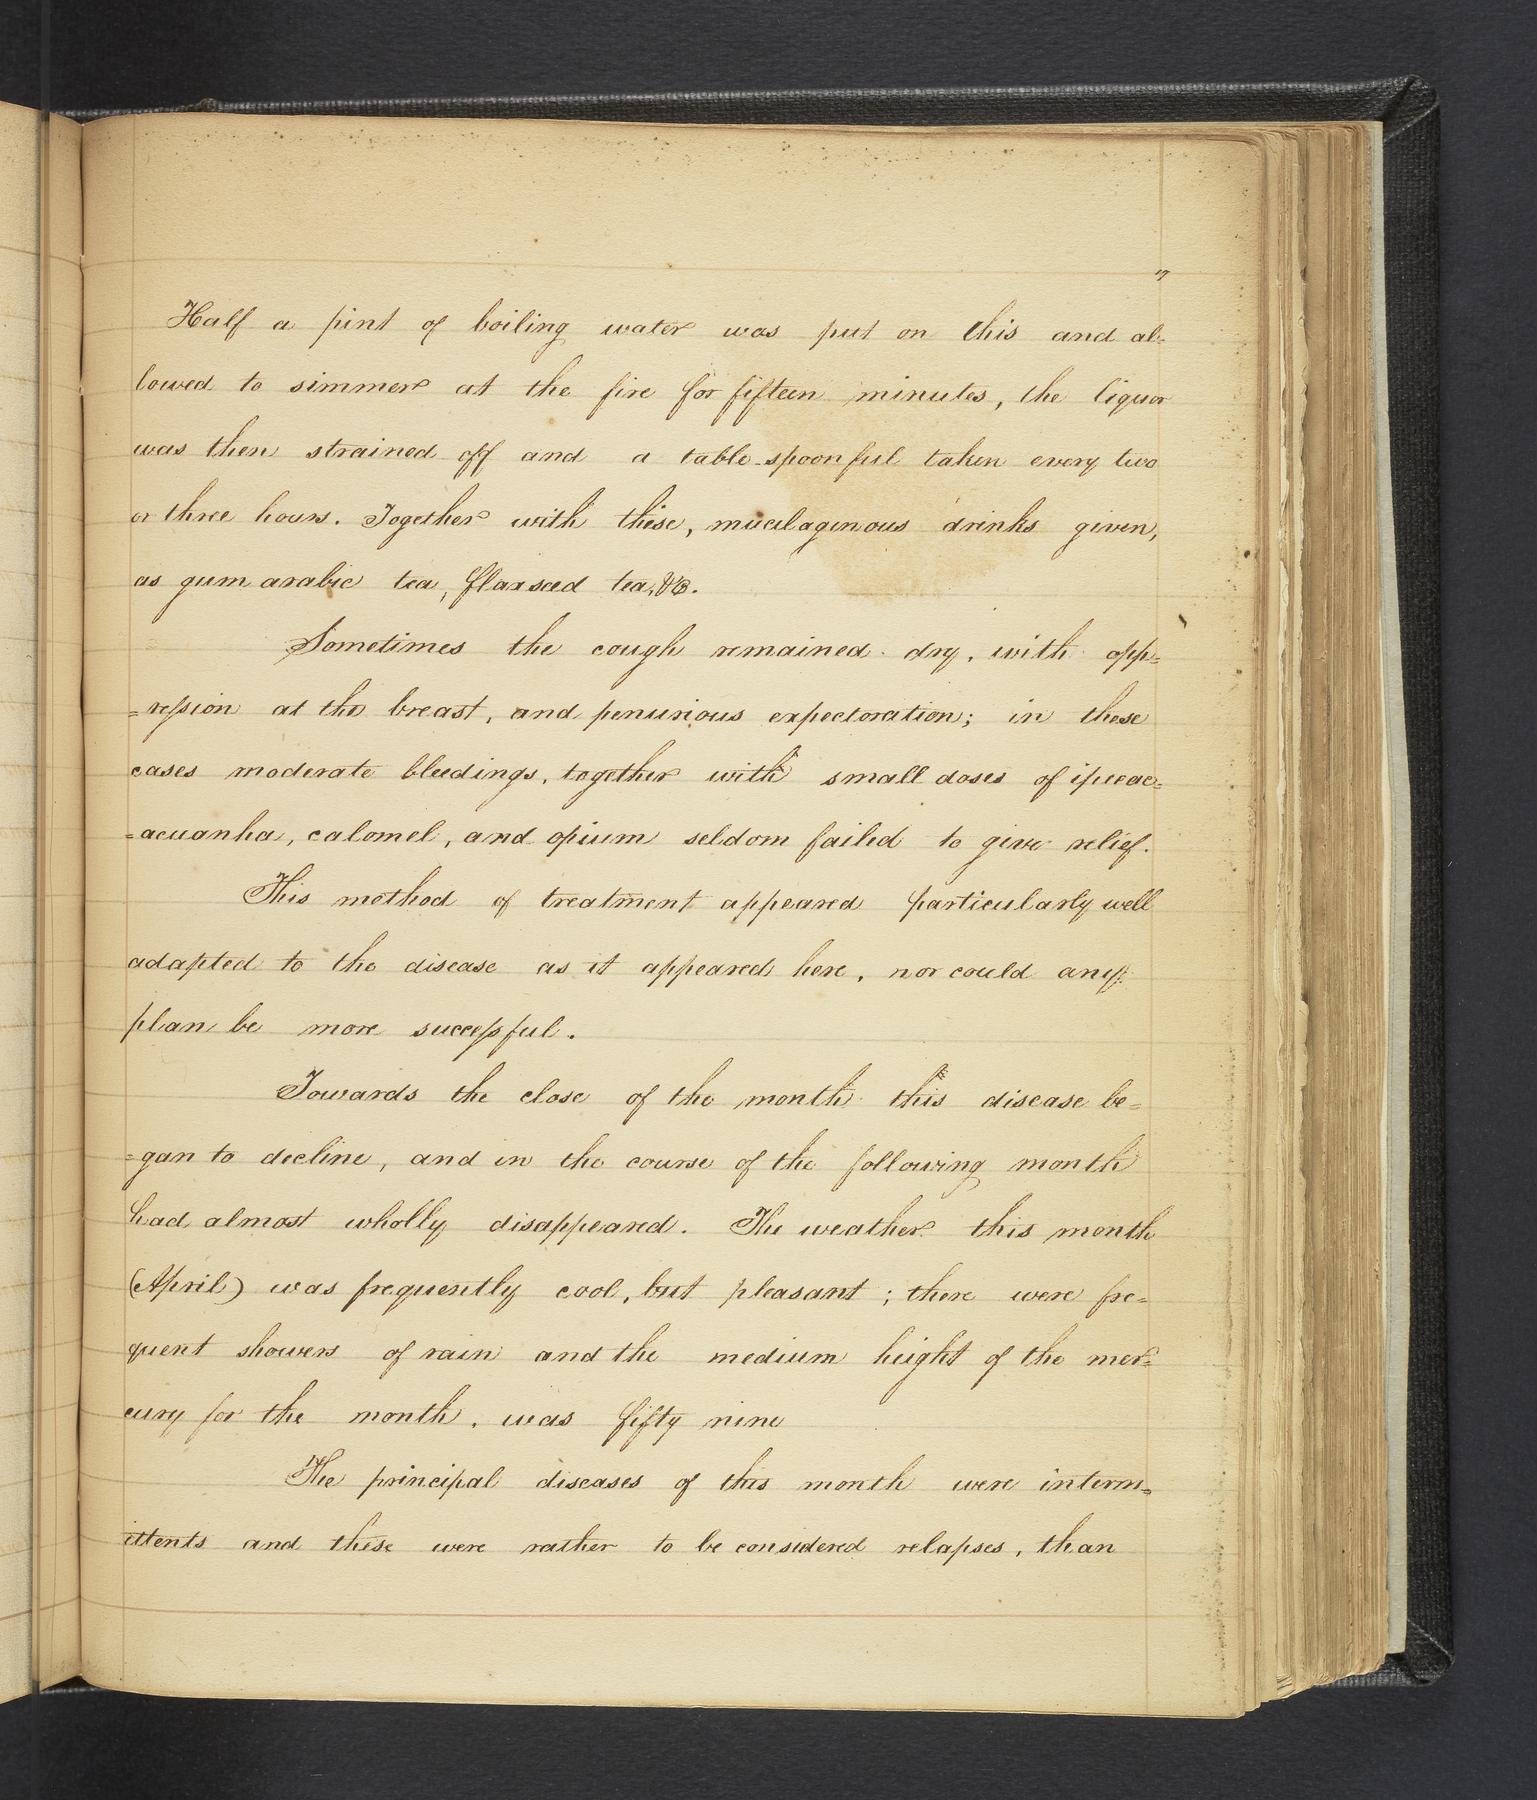 "
Half a pint of boiling water was put on this and al=
lowed to simmer at the fire for fifteen minutes, the liquor
was then strained off and a table-spoonful taken every two
or three hours. Together with these, mucilaginous drinks given,
as gum arabic tea, flaxseed tea, &c.
Sometimes the cough remained dry, with opp=
=ression at the breast, and penurious expectoration; in these
cases moderate bleedings, together with small doses of ipecac=
=acuanha, calomel, and opium seldom failed to give relief.
This method of treatment appeared particularly well
adapted to the disease as it appeared here, nor could any
plan be more successful.
Towards the close of the month this disease be=
=gan to decline, and in the course of the following month
had almost wholly disappeared. The weather this month
(April) was frequently cool, but pleasant; there were fre=
quent showers of rain and the medium height of the mer=
cury for the month, was fifty nine
The principal diseases of this month were interm=
ittents and these were rather to be considered relapses, than